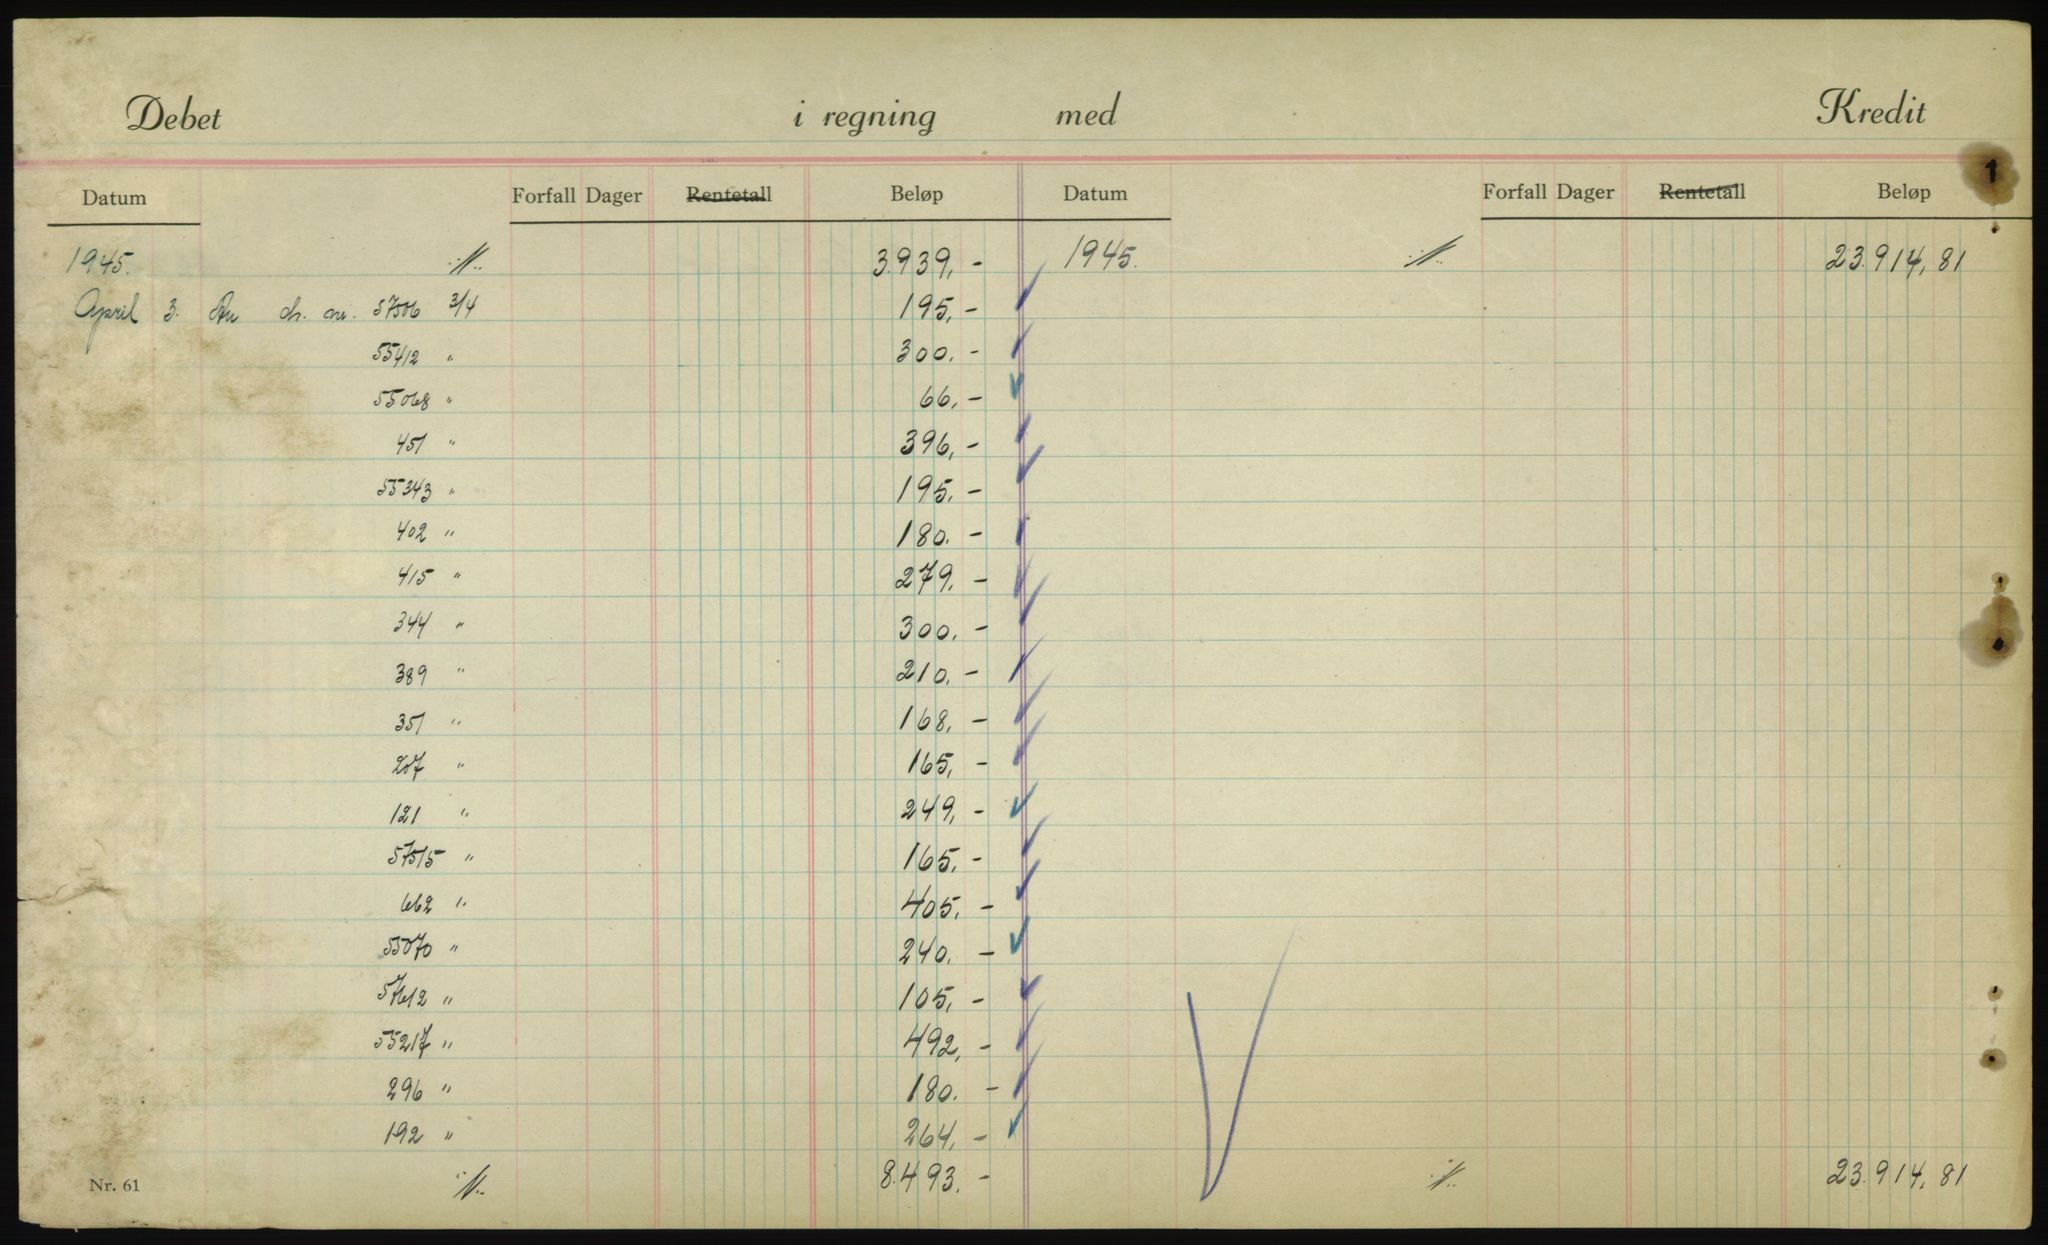 Debet i regning med Kredit
Datum Forfall Dager Rentetall Beløp Datum Forfall Dager Rentetall Beløp 1
1945. 3.939,- 1945. 23.914,81
April 3. An ch. nr. 57506 3/4 195,-
55412 " 300.-
55068 " 66,-
451 " 396,-
55343 " 195.-
402 " 180.-
415 " 279,-
344 " 300.-
389 " 210,-
351 " 168,-
207 " 165,-
121 " 249,-
57515 " 165,-
662 " 405,-
55070 " 240.-
57612 " 105,-
55217 " 492,-
296 " 180.-
192 " 264,-
Nr. 61 8.493.- 23.914,81